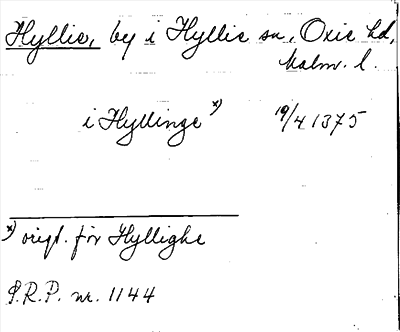 Hyllie, by i Hyllie sn, Oxie hd,
Malm. l.
i Hyllinge x) 19/4 1375
x) origt. för Hyllighe
S.R.P. nr. 1144